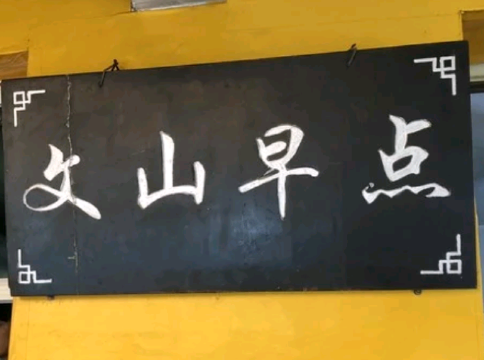 文山早点